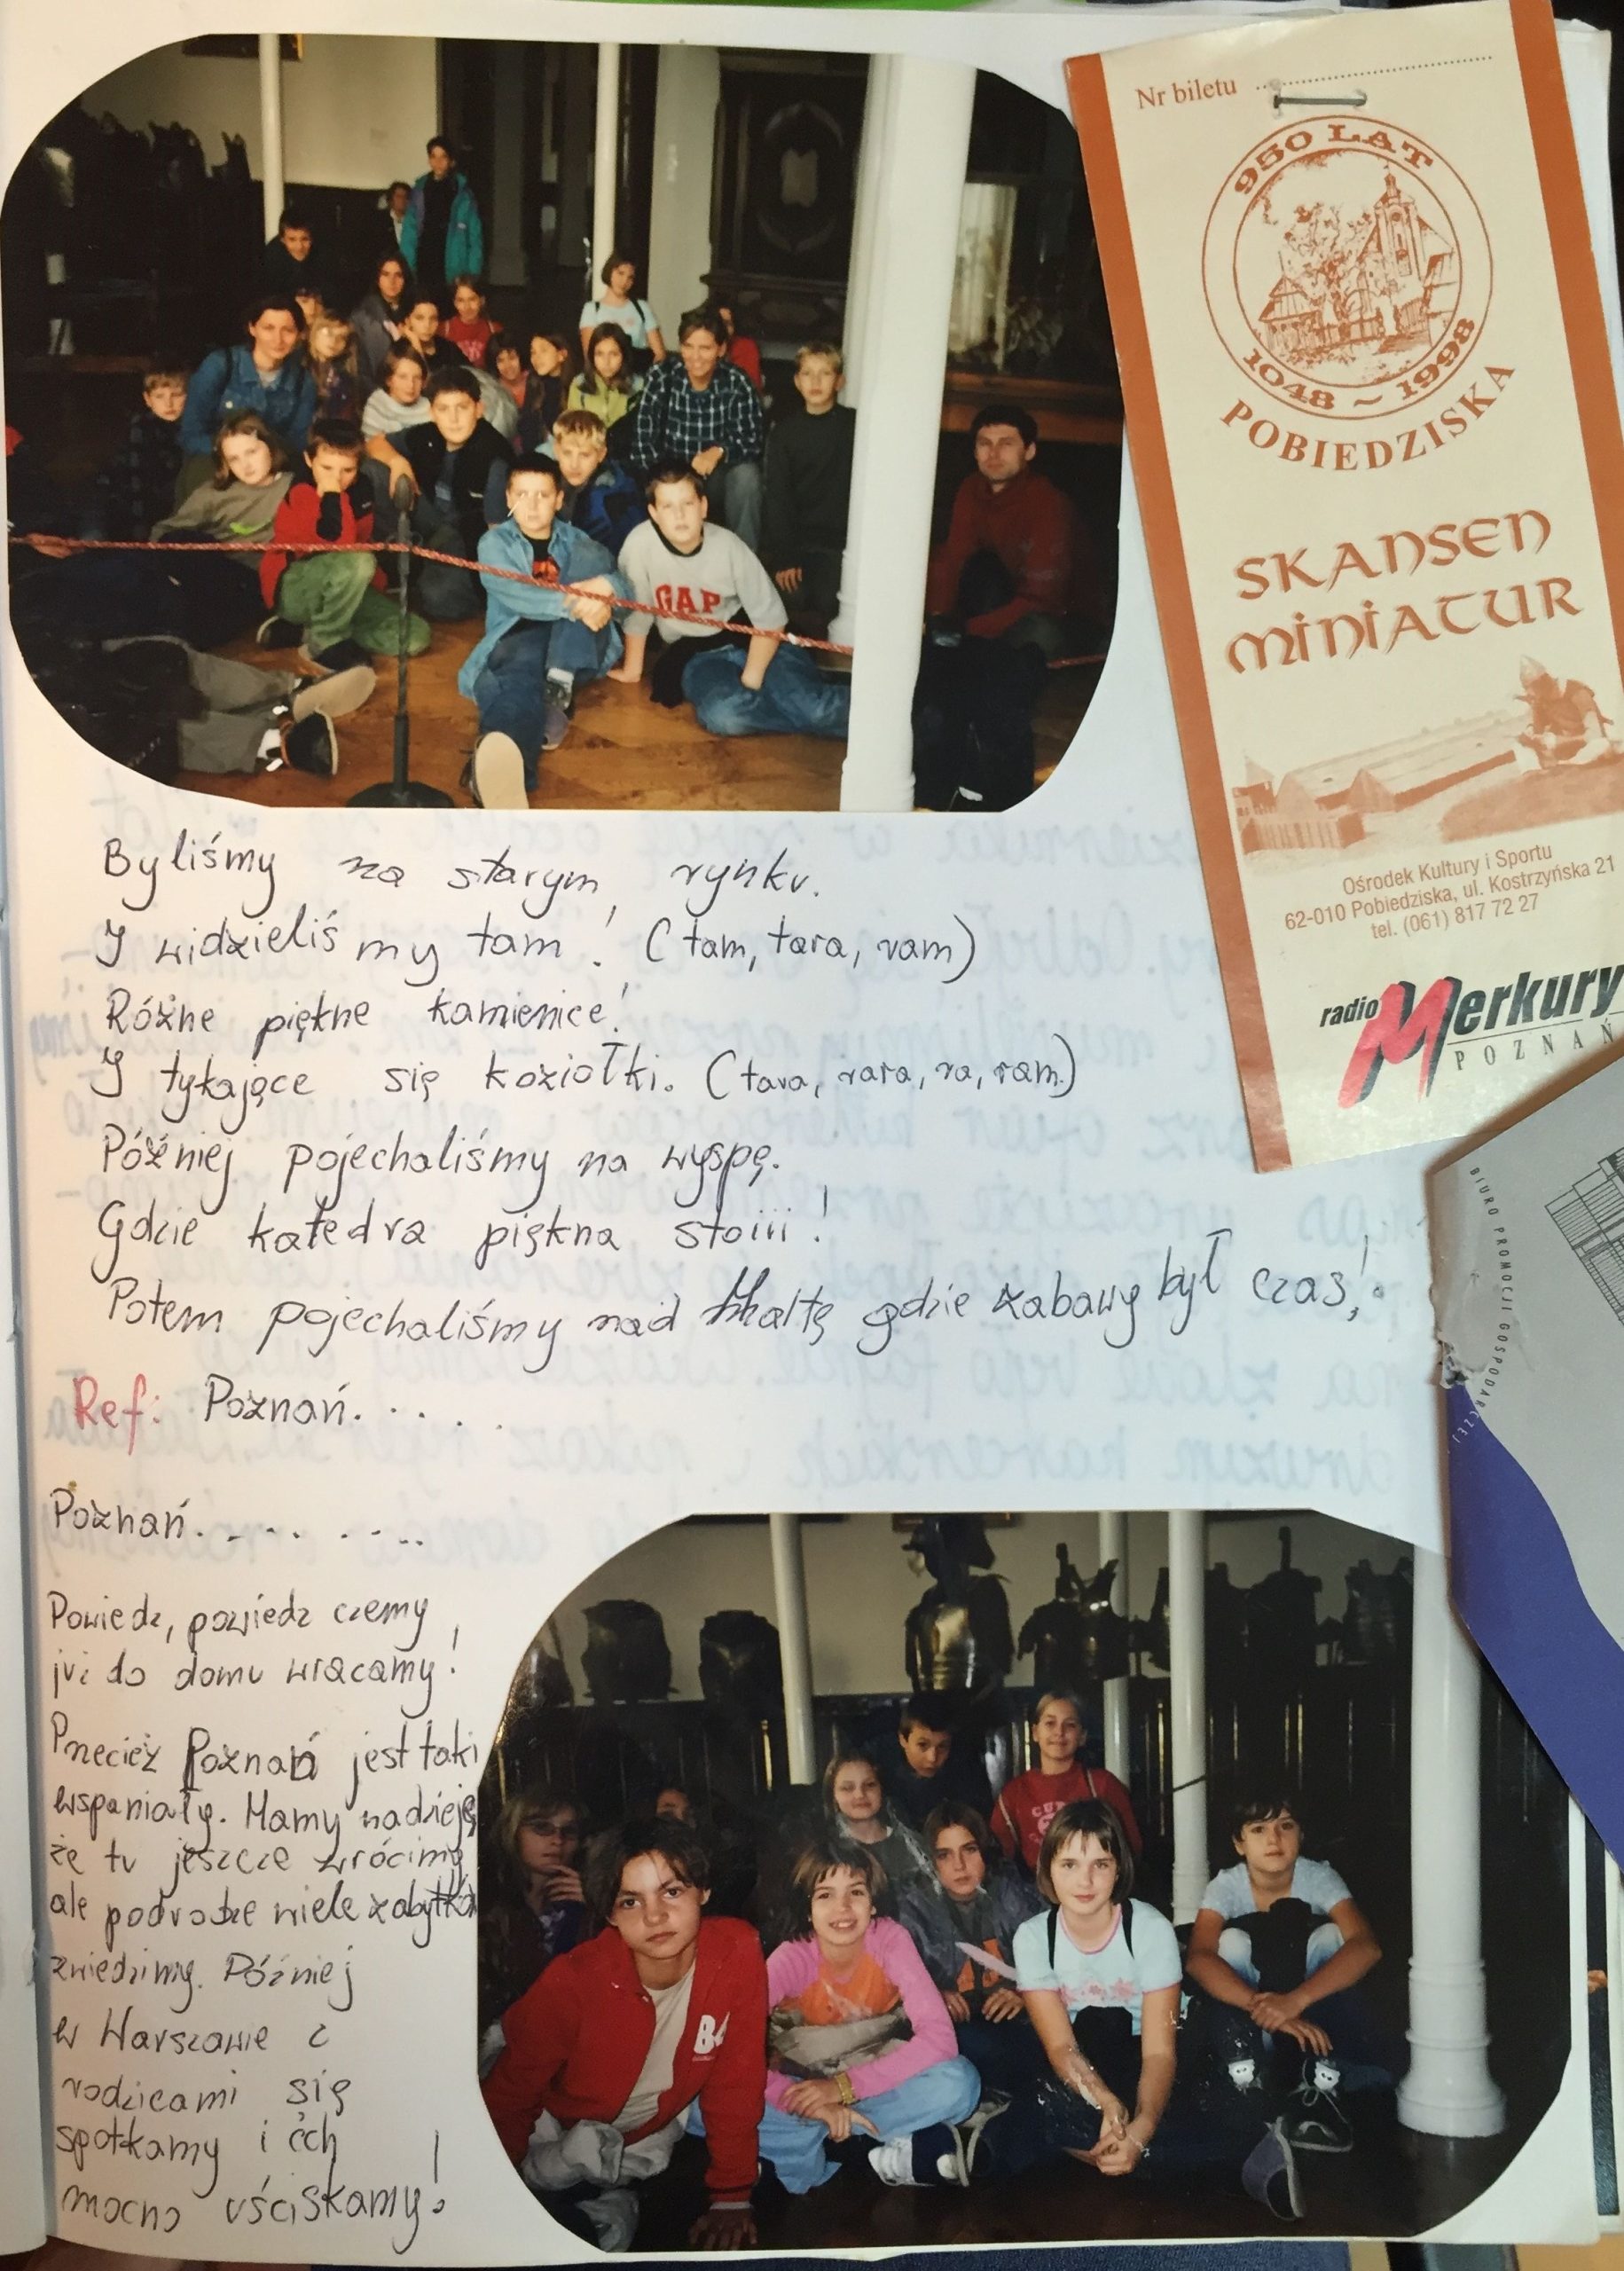 Nr biletu
950 LAT
1048 ~ 1998
POBIEDZISKA
SKANSEN
MINIATUR
Ośrodek Kultury i Sportu
62-010 Pobiedziska, ul. Kostrzyńska 21
tel. (061) 817 72 27
radio Merkury
POZNAŃ
BIURO PROMOCJI GOSPODARCZEJ
GAP
Byliśmy na starym rynku.
I widzieliśmy tam! (tam, tara, ram)
Różne piękne kamienice!
I tykające się koziołki. (tara, rara, ra, ram.)
Później pojechaliśmy na wyspę.
Gdzie katedra piękna stoiii!
Potem pojechaliśmy nad Maltę gdzie zabawy był czas!
Ref: Poznań.....
Poznań.........
Powiedz, powiedz czemy
już do domu wracamy!
Przecież Poznań jest taki
wspaniały. Mamy nadzieję,
że tu jeszcze wrócimy
ale podrodze wiele
zwiedzimy. Później
w Warszawie z
rodzicami się
spotkamy i ich
mocno uściskamy!